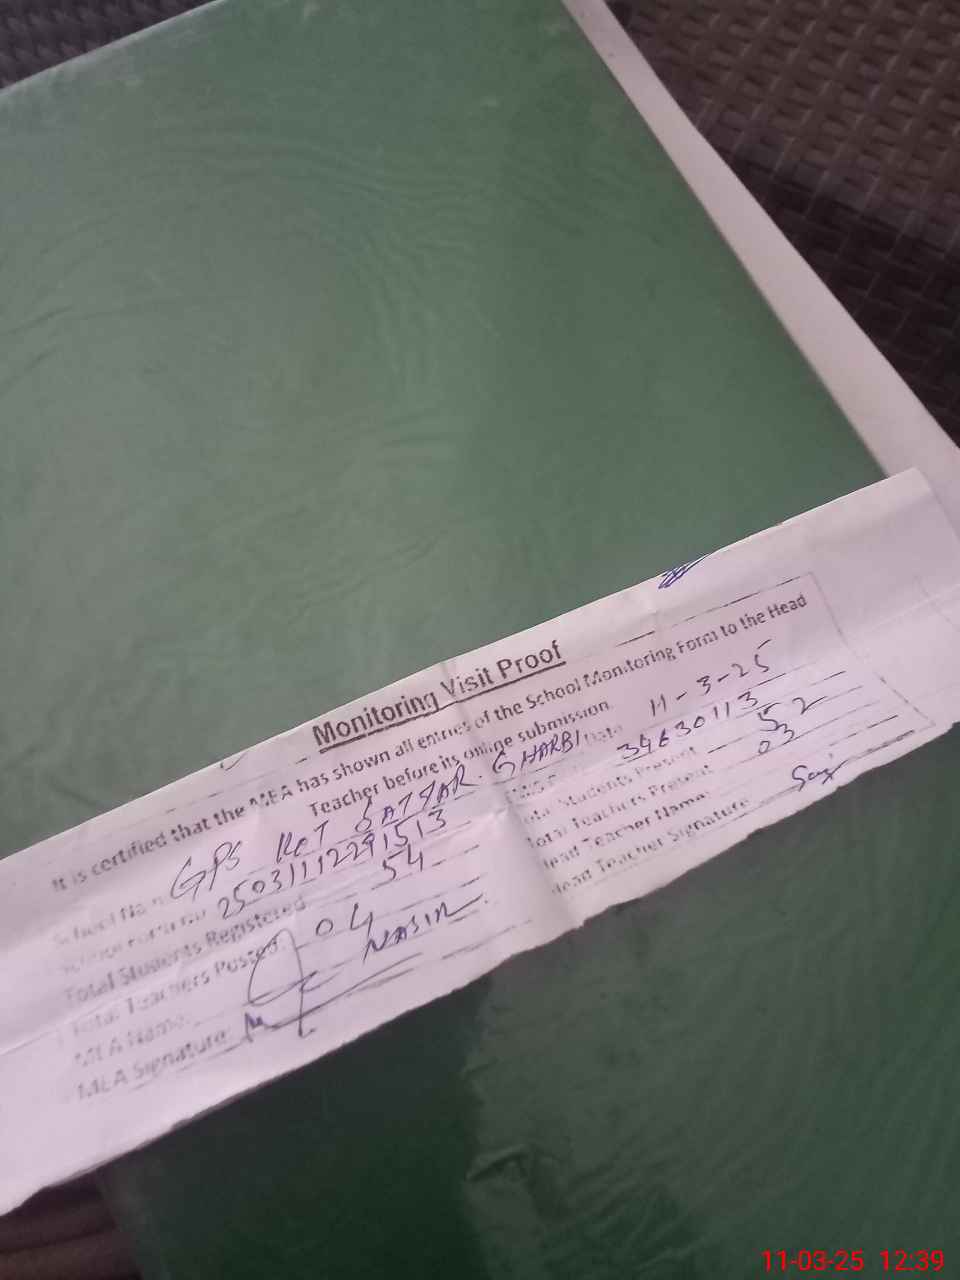 Monitoring Visit Proof
It is certified that the MEA has shown all entries of the School Monitoring Form to the Head
Teacher before its online submission.
School Name GPS KOT SATTAR GHARBI Date 11-3-25
25031112291513 34630113
Total Students Registered 54 Total Students Present 52
Total Teachers Posted 04 Total Teachers Present 03
MEA Name: NASIR Head Teacher Name:
MEA Signature: Head Teacher Signature
11-03-25 12:39